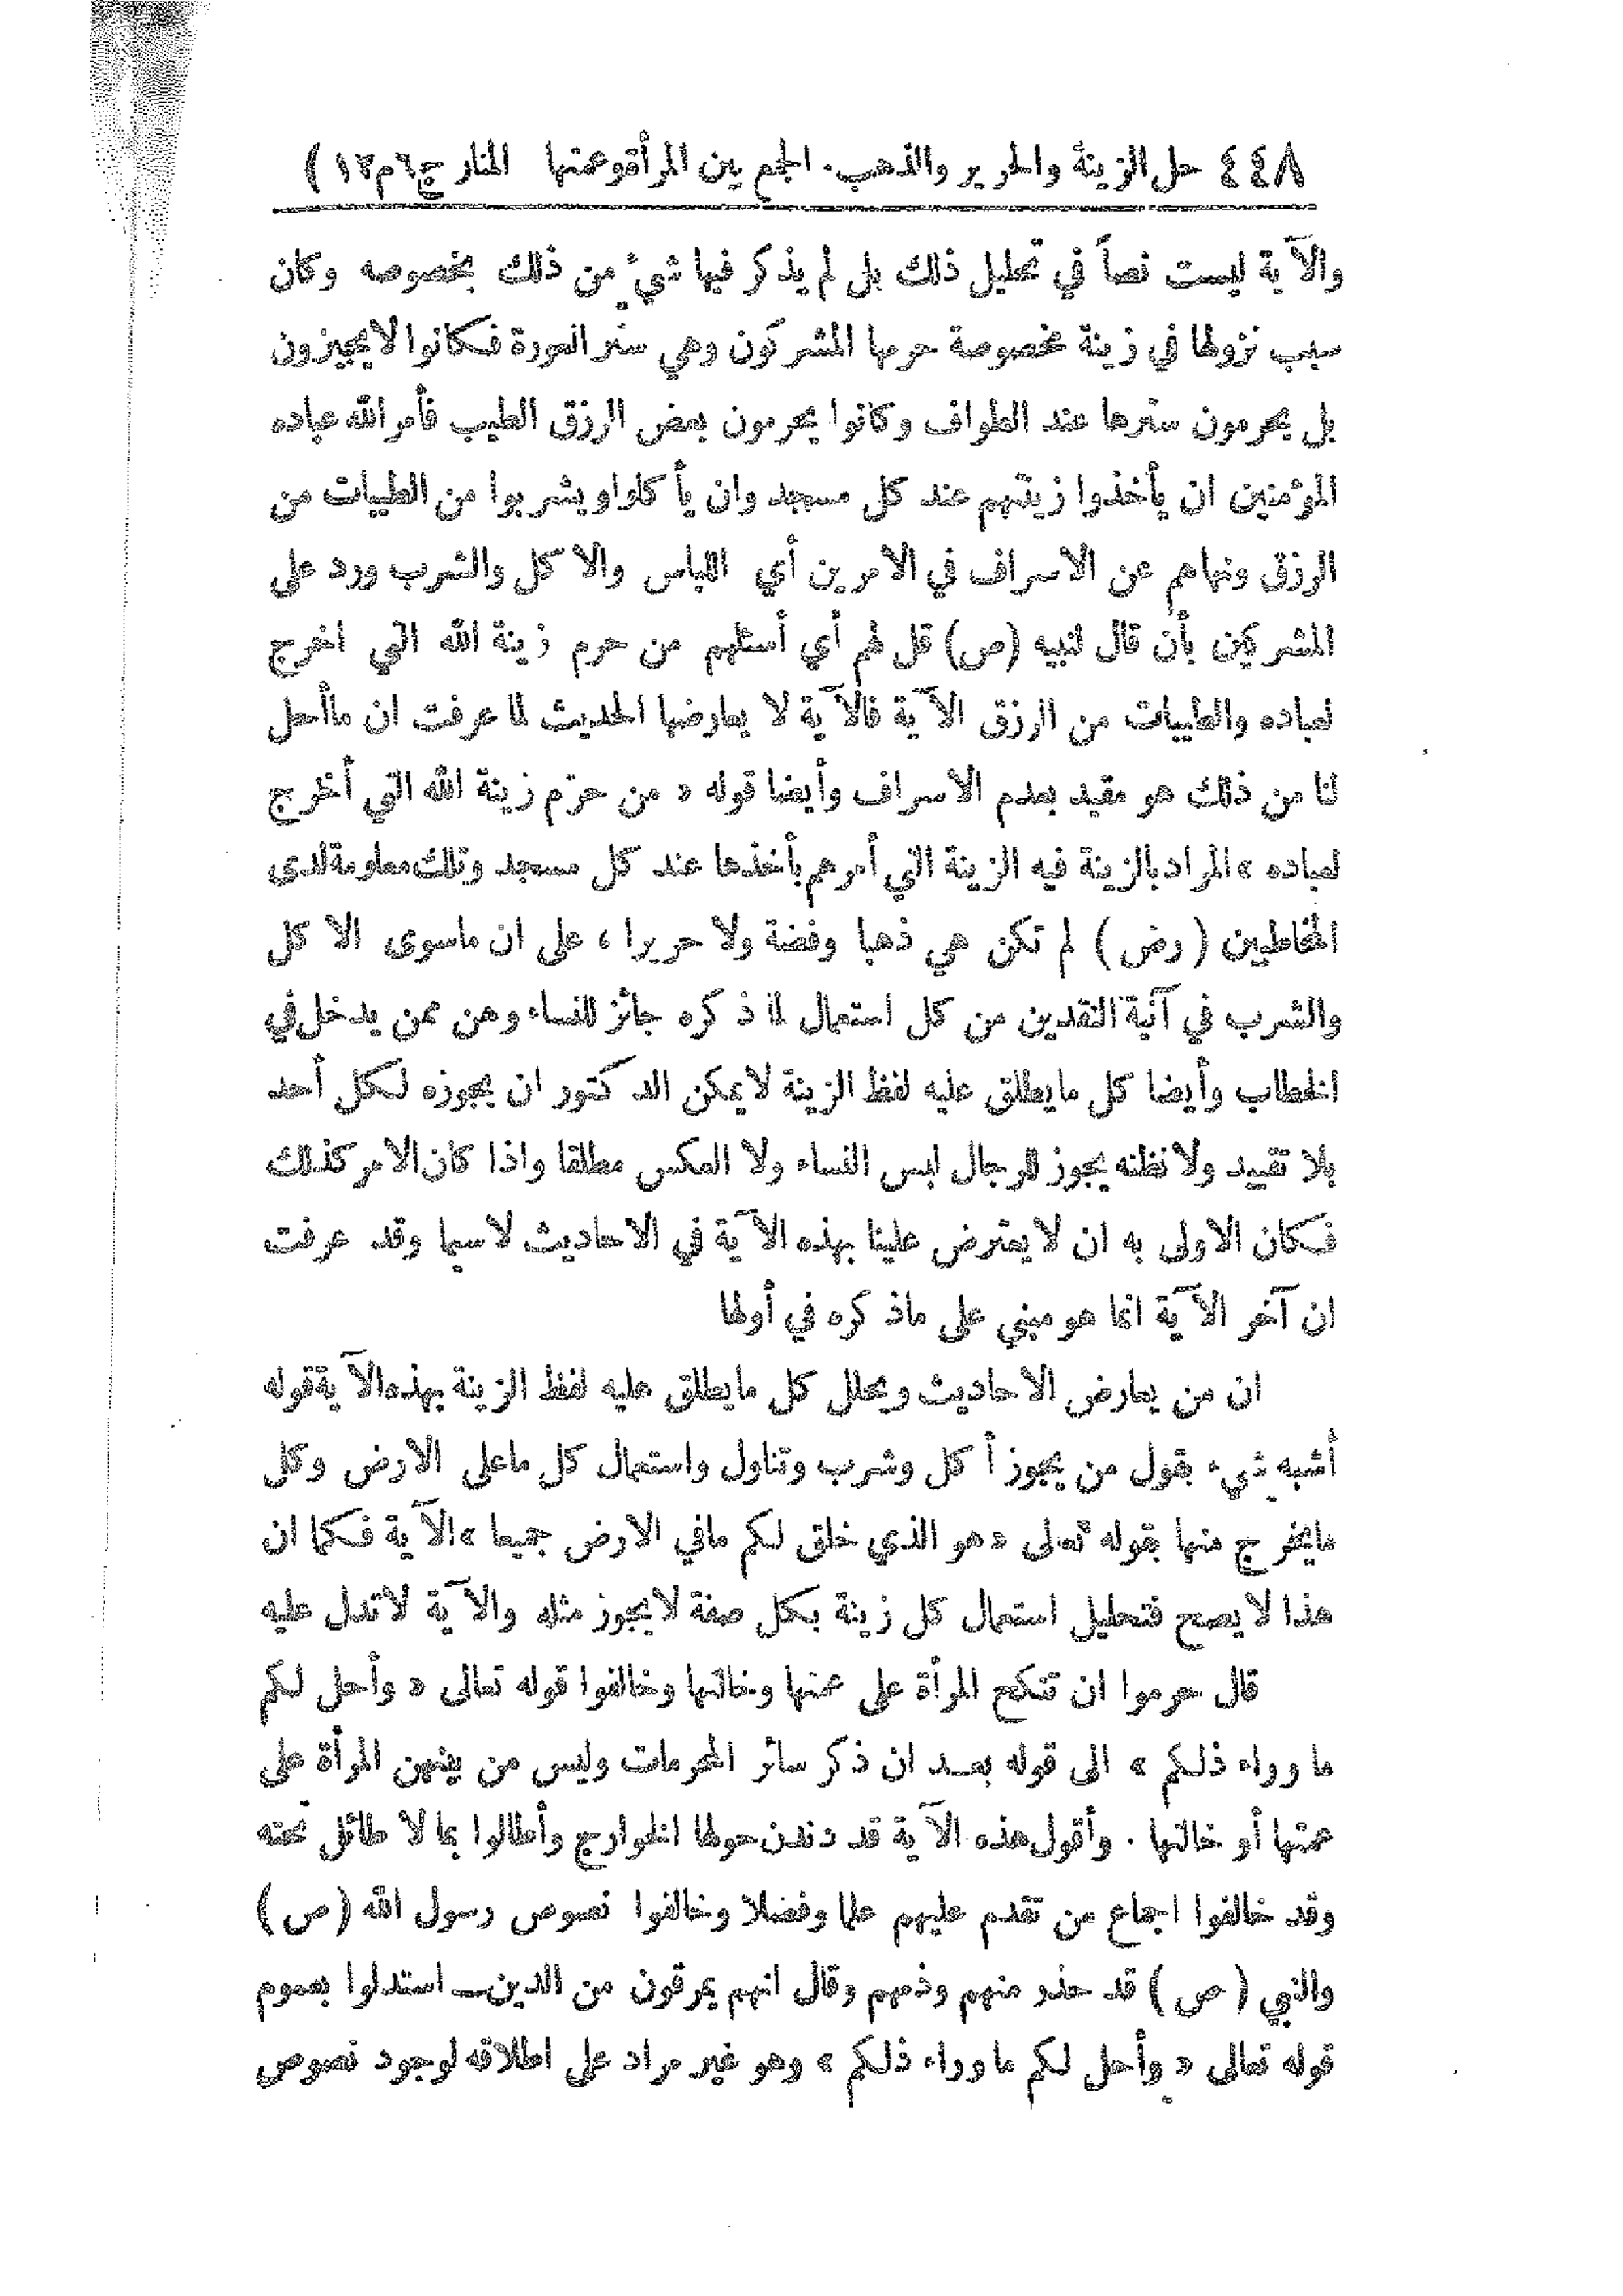 ٤٤٨ حل الزينة والحرير والذهب. الجمع بين المرأة وعمتها المنار ج٦م١٢ )
والآية ليست نصاً في تحليل ذلك بل لم يذكر فيها شيءٌ من ذلك بخصوصه وكان
سبب نزولها في زينة مخصوصة حرمها المشركون وهي ستر العورة فكانوا لايجيزون
بل يحرمون سترها عند الطواف وكانوا يحرمون بعض الرزق الطيب فأمر الله عباده
المؤمنين ان يأخذوا زينتهم عند كل مسجد وان يأكلوا ويشربوا من الطيبات من
الرزق ونهاهم عن الاسراف في الامرين أي اللباس والاكل والشرب ورد على
المشركين بأن قال لنبيه (ص) قل لهم أي أسئلهم من حرم زينة الله التي اخرج
لعباده والطيبات من الرزق الآية فالآية لا يعارضها الحديث لما عرفت ان ماأحل
لنا من ذلك هو مقيد بعدم الاسراف وأيضا قوله « من حرّم زينة الله التي أخرج
لعباده » المراد بالزينة فيه الزينة التي أمرهم بأخذها عند كل مسجد وتلك معلومة لدى
المخاطبين (رض) لم تكن هي ذهبا وفضة ولا حريرا ، على ان ماسوى الاكل
والشرب في آنية النقدين من كل استعمال لما ذكره جائز للنساء وهن ممن يدخل في
الخطاب وأيضا كل مايطلق عليه لفظ الزينة لايمكن الدكتور ان يجوزه لكل أحد
بلا تقييد ولا نظنه يجوز للرجال لبس النساء ولا العكس مطلقا واذا كان الامر كذلك
فكان الاولى به ان لايعترض علينا بهذه الآية في الاحاديث لاسيما وقد عرفت
ان آخر الآية انما هو مبني على ماذكره في أولها
ان من يعارض الاحاديث ويحلل كل مايطلق عليه لفظ الزينة بهذه الآية قوله
أشبه شيء بقول من يجوز أكل وشرب وتناول واستعمال كل ماعلى الارض وكل
مايخرج منها بقوله تعالى « هو الذي خلق لكم مافي الارض جميعا » الآية فكما ان
هذا لايصح فتحليل استعمال كل زينة بكل صفة لايجوز مثله والآية لاتدل عليه
قال حرموا ان تنكح المرأة على عمتها وخالتها وخالفوا قوله تعالى « وأحل لكم
ما وراء ذلكم » الى قوله بعد ان ذكر سائر المحرمات وليس من بينهن المرأة على
عمتها أو خالتها . وأقول هذه الآية قد دندن حولها الخوارج وأطالوا بما لا طائل تحته
وقد خالفوا اجماع من تقدم عليهم علما وفضلا وخالفوا نصوص رسول الله (ص)
والنبي (ص) قد حذر منهم وذمهم وقال انهم يمرقون من الدين ـ استدلوا بعموم
قوله تعالى « وأحل لكم ما وراء ذلكم » وهو غير مراد على اطلاقه لوجود نصوص